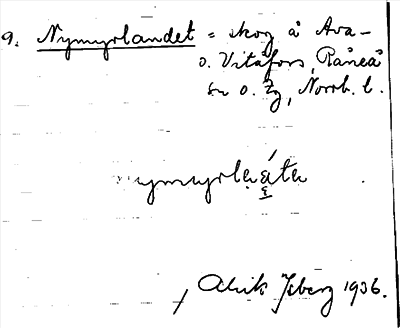 9. Nymyrlandet = skog å Ava-
o. Vitåfors, Råneå
sn o. Zg, Norrb. l.
nymyrlεátεr
Alrik Isberg 1936.